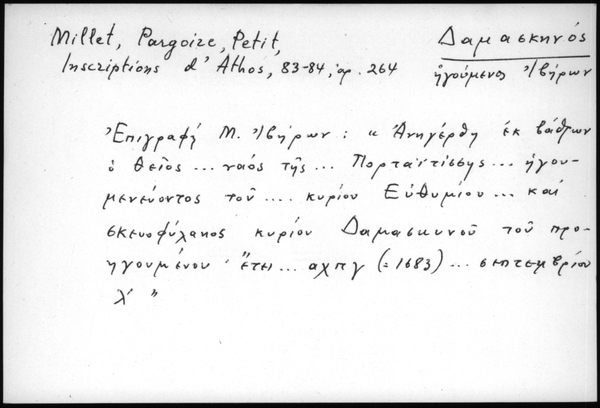 Millet, Pargoire, Petit,
Inscriptions d'Athos, 83-84, ἀρ. 264
Δαμασκηνός
ἡγούμενος Ἰβήρων
Ἐπιγραφή Μ. Ἰβήρων : « Ἀνηγέρθη ἐκ βάθρων
ὁ θεῖος ... ναός τῆς ... Πορταϊτίσσης ... ἡγου-
μενεύοντος τοῦ .... κυρίου Εὐθυμίου ... καί
σκευοφύλακος κυρίου Δαμασκηνοῦ τοῦ προ-
ηγουμένου · ἔτει ... αχπγ (= 1683) ... σεπτεμβρίου
λ' »